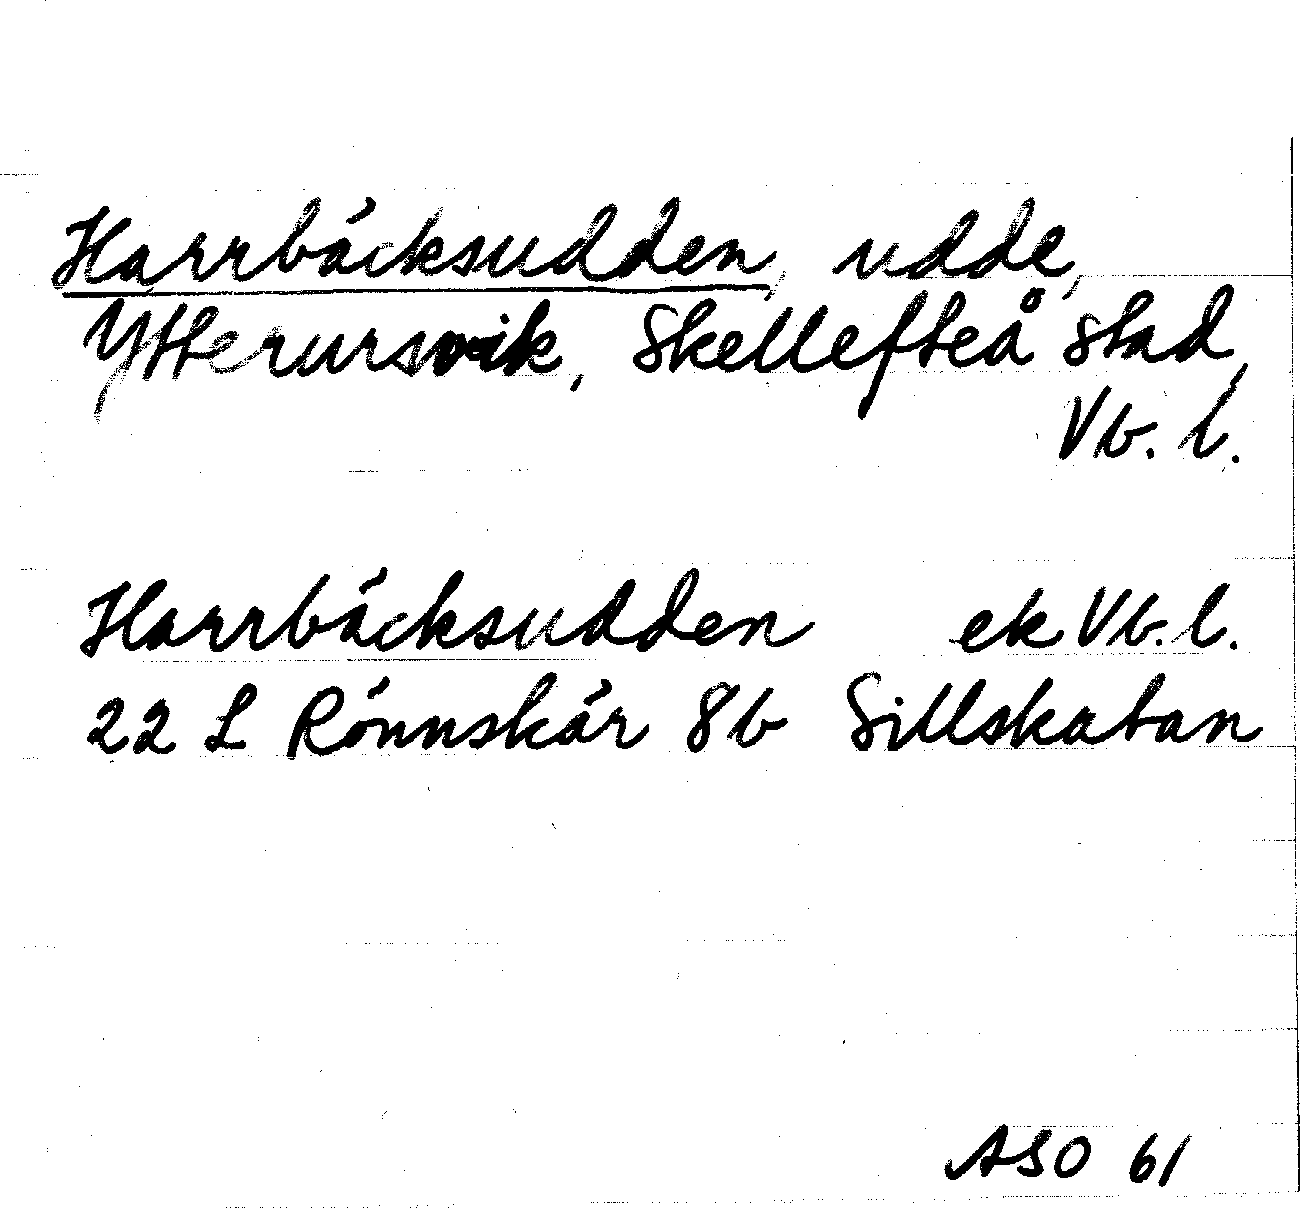 Harrbäcksudden, udde,
Ytterursvik, Skellefteå stad,
Vb. l.
Harrbäcksudden ek Vb. l.
22 L Rönnskär 8b Sillskatan
ASO 61